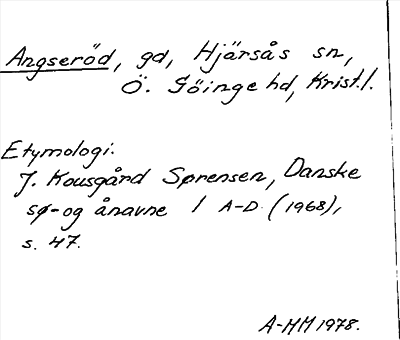 Angseröd, gd, Hjärsås sn,
Ö. Göinge hd, Krist.l.
Etymologi:
J. Kousgård Sørensen, Danske
sø- og ånavne 1 A-D (1968),
s. 47.
A-MM 1978.